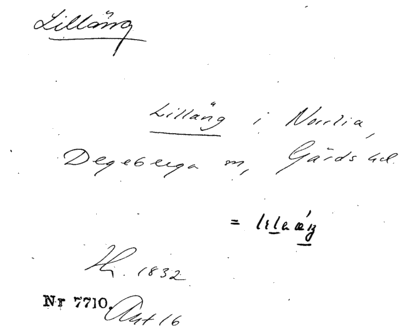 Lilläng
Lilläng i Norrlia,
Degeberga sn, Gärds hd.
= lilaäŋ
Hr. 1832
Nr 7710. Ant 16